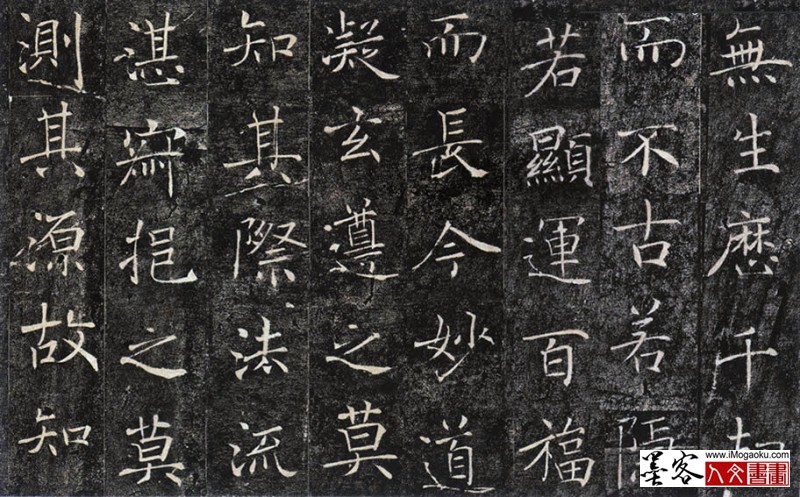 無生歴千劫
而不古若隱
若顯運百福
而長今妙道
凝玄遵之莫
知其際法流
湛寂挹之莫
測其源故知
www.iMogaoku.com
墨客
人文書畫